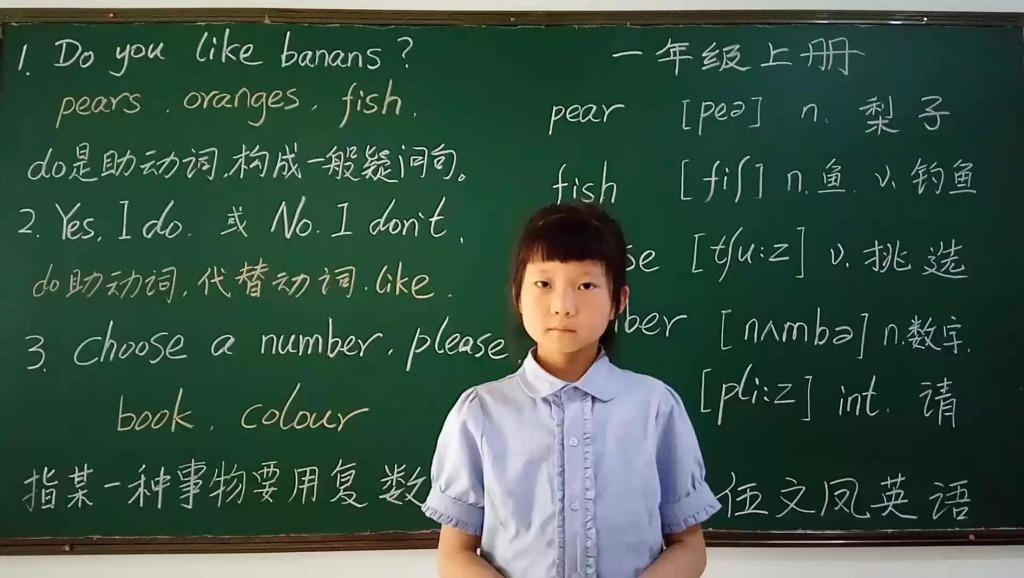 1. Do you like banans?
pears. oranges. fish.
do是助动词,构成一般疑问句。
2. Yes, I do. 或 No. I don't.
do助动词,代替动词.like.
3. choose a number, please.
book. colour
指某一种事物要用复数
一年级上册
pear [peə] n. 梨子
fish [fiʃ] n.鱼. v.钓鱼
se [tʃu:z] v.挑选
ber [nʌmbə] n.数字.
[pli:z] int. 请
伍文凤英语